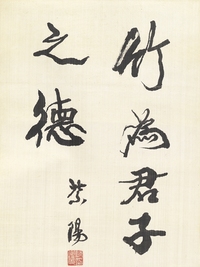 竹為君子
之德
紫陽